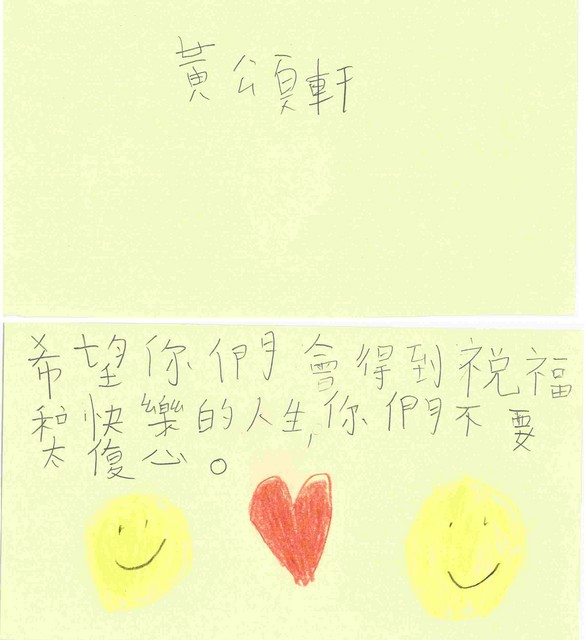 黃公頁軒
希望你們會得到祝福
和快樂的人生,你們不要
太復心。